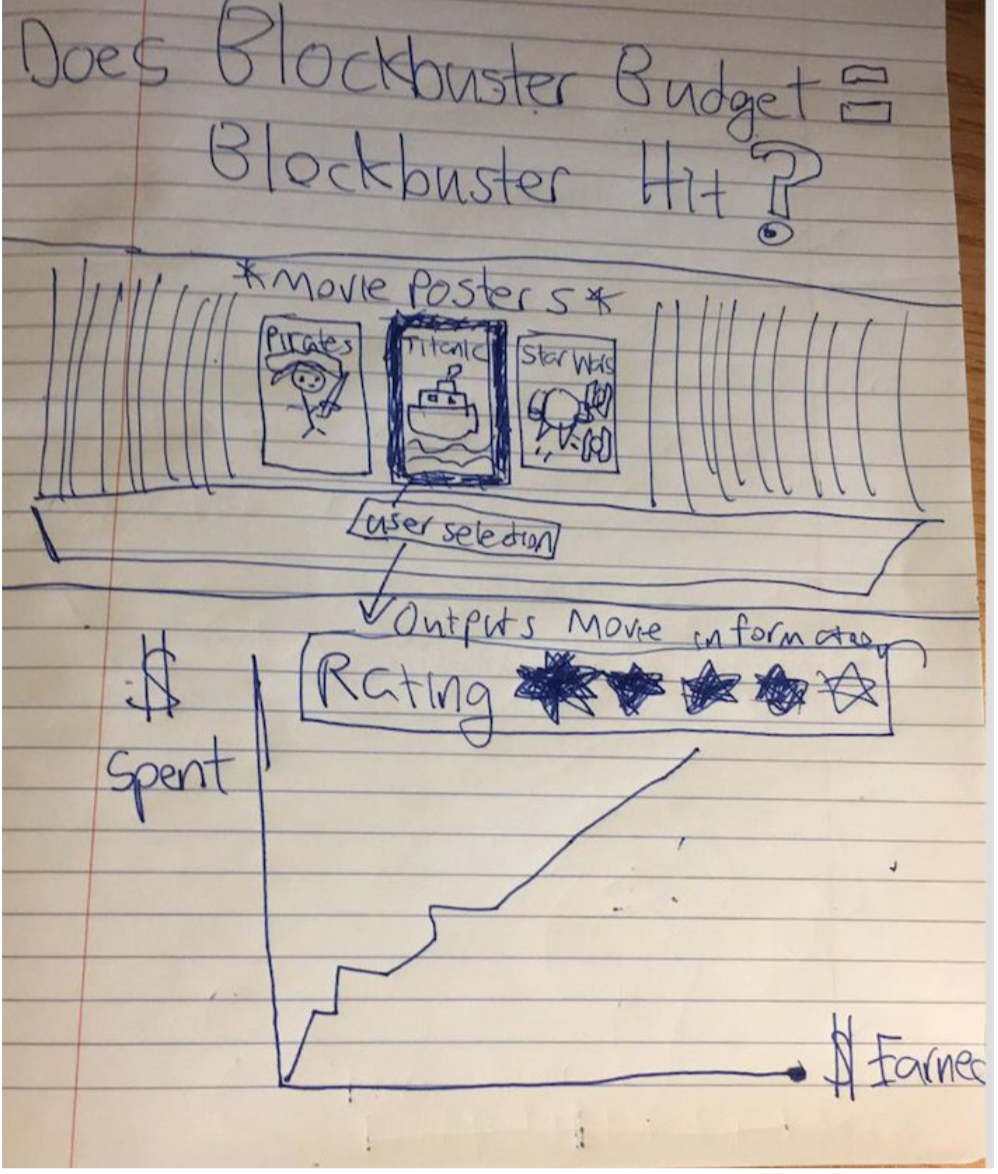 Does Blockbuster Budget =
Blockbuster Hit?
*Movie Posters*
Pirates
Titanic
Star Wars
user selection
Outputs Movie information
Rating
$
Spent
$ Earned